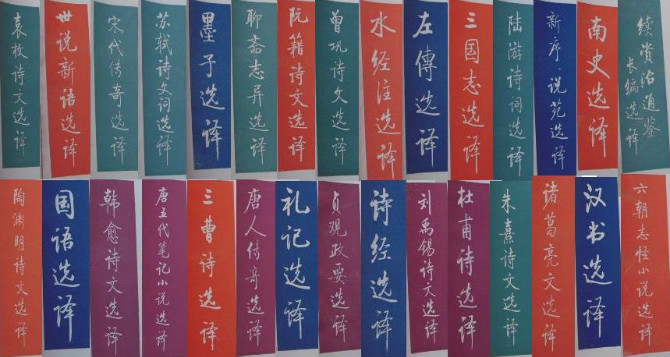 袁枚诗文选译
世说新语选译
宋代传奇选译
苏轼诗文词选译
墨子选译
聊斋志异选译
阮籍诗文选译
曾巩诗文选译
水经注选译
左傳选译
三国志选译
陆游诗词选译
新序 说苑选译
南史选译
续资治通鉴
长编选译
陶渊明诗文选译
国语选译
韩愈诗文选译
唐五代笔记小说选译
三曹诗选译
唐人传奇选译
礼记选译
贞观政要选译
诗经选译
刘禹锡诗文选译
杜甫诗选译
朱熹诗文选译
诸葛亮文选译
汉书选译
六朝志怪小说选译